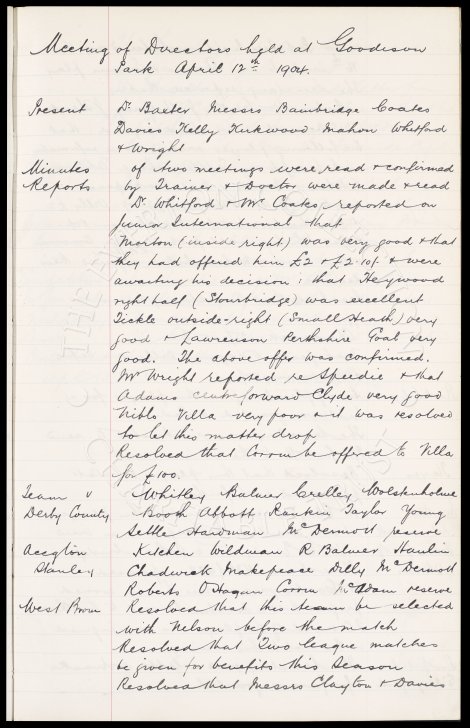 Meeting of Directors held at Goodison
Park April 12th 1904.
Present Dr Baxter Messrs Bainbridge Coates
Davies Kelly Kirkwood Mahon Whitford
& Wright
Minutes of two meetings were read & confirmed
Reports by Trainer & Doctor were made & read
Dr Whitford & Mr Coates reported on
Junior International that
Morton (inside right) was very good & that
they had offered him £2 & £2.10/- & were
awaiting his decision: that Heywood
right half (Stourbridge) was excellent
Tickle outside-right (Small Heath) very
good & Lawrenson Perthshire Goal very
good. The above offer was confirmed.
Mr Wright reported re Speedie & that
Adams centre forward Clyde very good
Niblo Villa very poor & it was resolved
to let this matter drop
Resolved that Corrin be offered to Villa
for £100.
Team v Whitley Balmer Crelley Wolstenholme
Derby County Booth Abbott Rankin Taylor Young
Settle Hardman McDermott reserve
Accgton Kitchen Wildman R Balmer
Stanley Chadwick Makepeace Dilly McDermott
Roberts O'Hagan Corrin McAdam reserve
West Brom Resolved that this team be selected
with Nelson before the match
Resolved that Two league matches
be given for benefits this Season
Resolved that Messrs Clayton & Davies